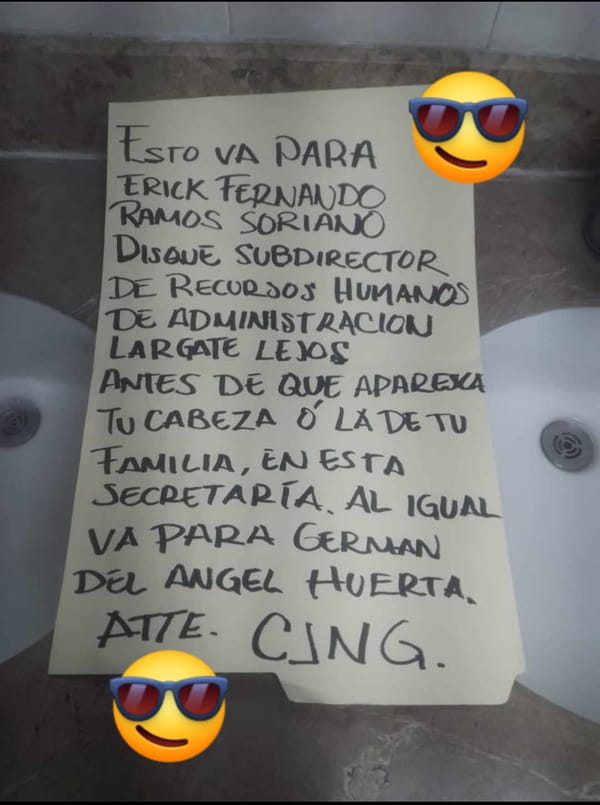 ESTO VA PARA
ERICK FERNANDO
RAMOS SORIANO
DISQUE SUBDIRECTOR
DE RECURSOS HUMANOS
DE ADMINISTRACION
LARGATE LEJOS
ANTES DE QUE APAREXCA
TU CABEZA Ó LA DE TU
FAMILIA, EN ESTA
SECRETARÍA. AL IGUAL
VA PARA GERMAN
DEL ANGEL HUERTA.
ATTE. CJNG.